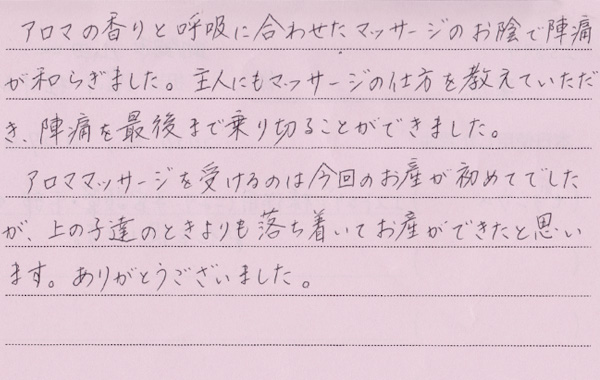 アロマの香りと呼吸に合わせたマッサージのお陰で陣痛
が和らぎました。主人にもマッサージの仕方を教えていただ
き、陣痛を最後まで乗り切ることができました。
アロママッサージを受けるのは今回のお産が初めてでした
が、上の子達のときよりも落ち着いてお産ができたと思い
ます。ありがとうございました。